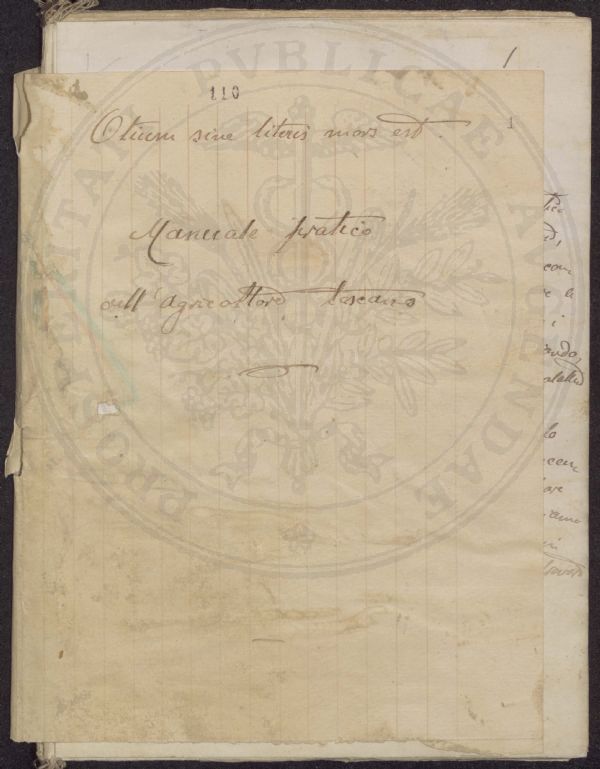 1
110
Otium sine literis mors est.
1
Manuale pratico
dell'agricoltore toscano
PROSPERITATI PVBLICAE AVGENDAE